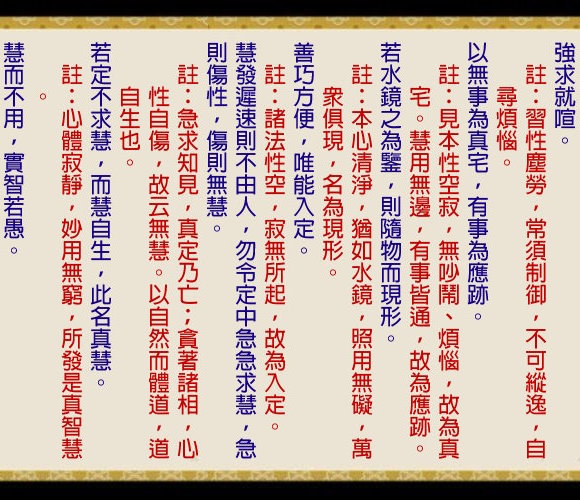 強求就喧。
註：習性塵勞，常須制御，不可縱逸，自
尋煩惱。
以無事為真宅，有事為應跡。
註：見本性空寂，無吵鬧、煩惱，故為真
宅。慧用無邊，有事皆通，故為應跡。
若水鏡之為鑒，則隨物而現形。
註：本心清淨，猶如水鏡，照用無礙，萬
衆俱現，名為現形。
善巧方便，唯能入定。
註：諸法性空，寂無所起，故為入定。
慧發遲速則不由人，勿令定中急急求慧，急
則傷性，傷則無慧。
註：急求知見，真定乃亡；貪著諸相，心
性自傷，故云無慧。以自然而體道，道
自生也。
若定不求慧，而慧自生，此名真慧。
註：心體寂靜，妙用無窮，所發是真智慧
。
慧而不用，實智若愚。